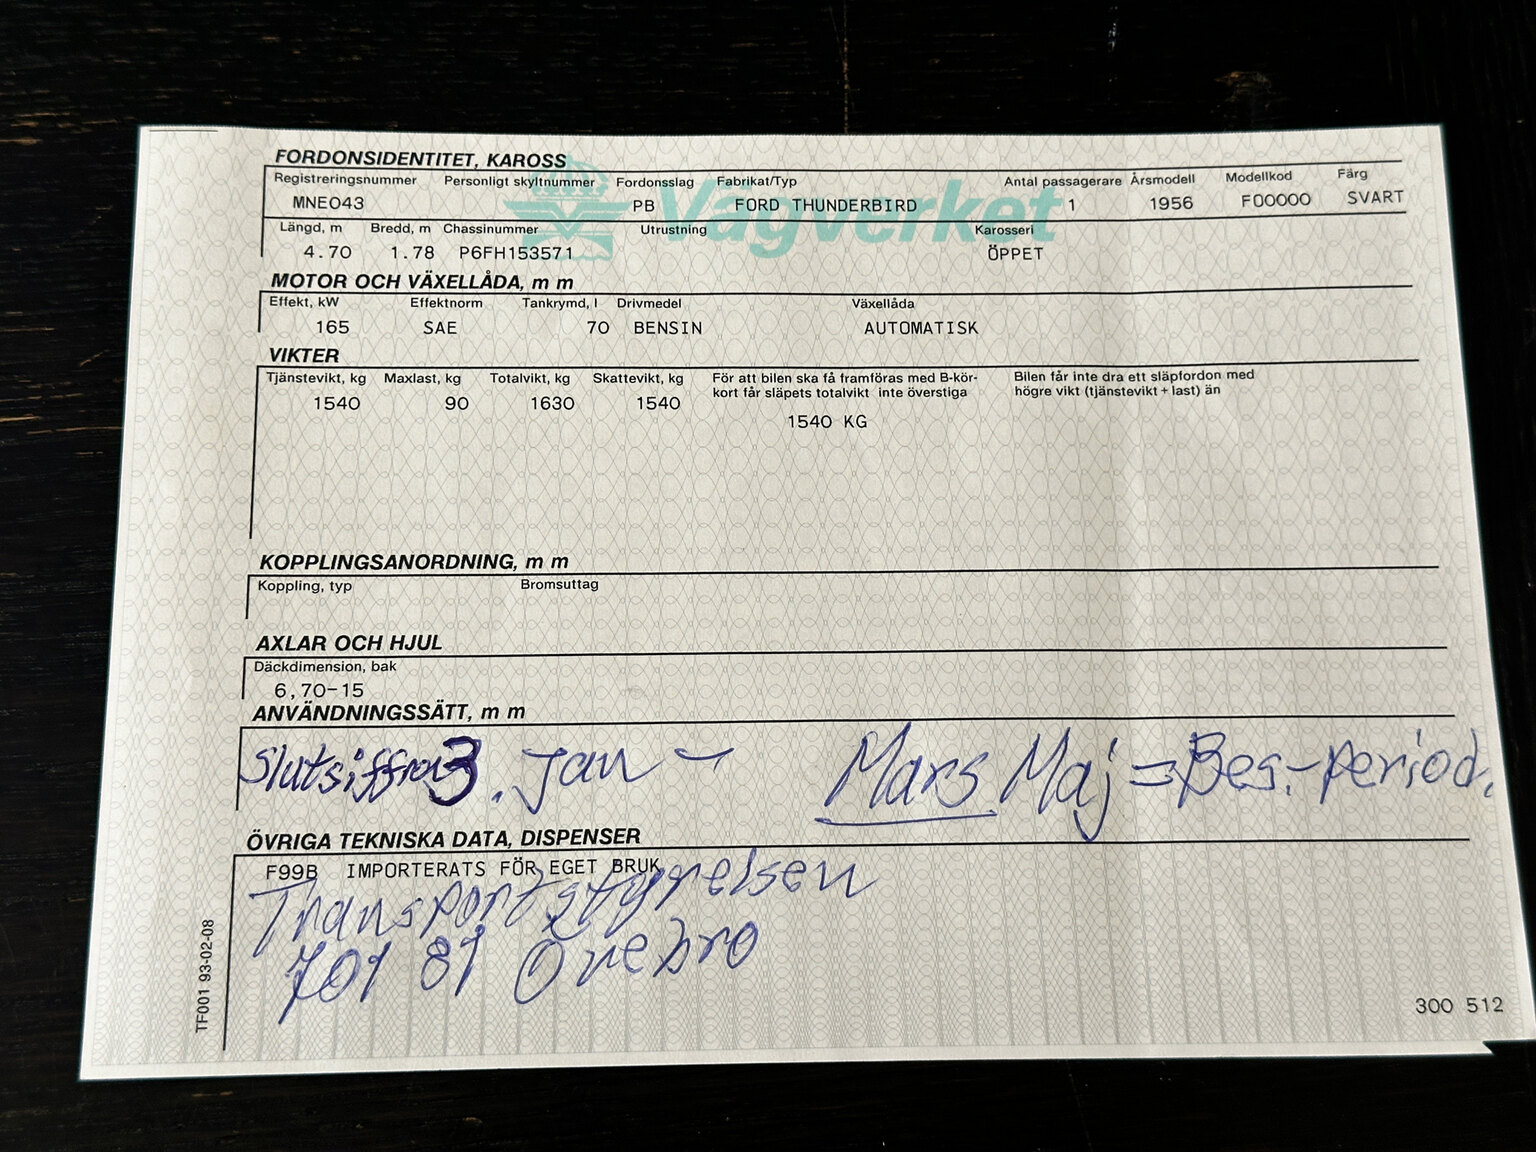 Vägverket
FORDONSIDENTITET, KAROSS
Registreringsnummer Personligt skyltnummer Fordonsslag Fabrikat/Typ Antal passagerare Årsmodell Modellkod Färg
MNE043 PB FORD THUNDERBIRD 1 1956 F00000 SVART
Längd, m Bredd, m Chassinummer Utrustning Karosseri
4.70 1.78 P6FH153571 ÖPPET
MOTOR OCH VÄXELLÅDA, m m
Effekt, kW Effektnorm Tankrymd, l Drivmedel Växellåda
165 SAE 70 BENSIN AUTOMATISK
VIKTER
Tjänstevikt, kg Maxlast, kg Totalvikt, kg Skattevikt, kg För att bilen ska få framföras med B-kör- Bilen får inte dra ett släpfordon med
kort får släpets totalvikt inte överstiga högre vikt (tjänstevikt + last) än
1540 90 1630 1540
1540 KG
KOPPLINGSANORDNING, m m
Koppling, typ Bromsuttag
AXLAR OCH HJUL
Däckdimension, bak
6,70-15
ANVÄNDNINGSSÄTT, m m
Slutsiffra 3. Jan – Mars Maj = Bes.-period.
ÖVRIGA TEKNISKA DATA, DISPENSER
F99B IMPORTERATS FÖR EGET BRUK
Transportstyrelsen
701 81 Örebro
TF001 93-02-08
300 512